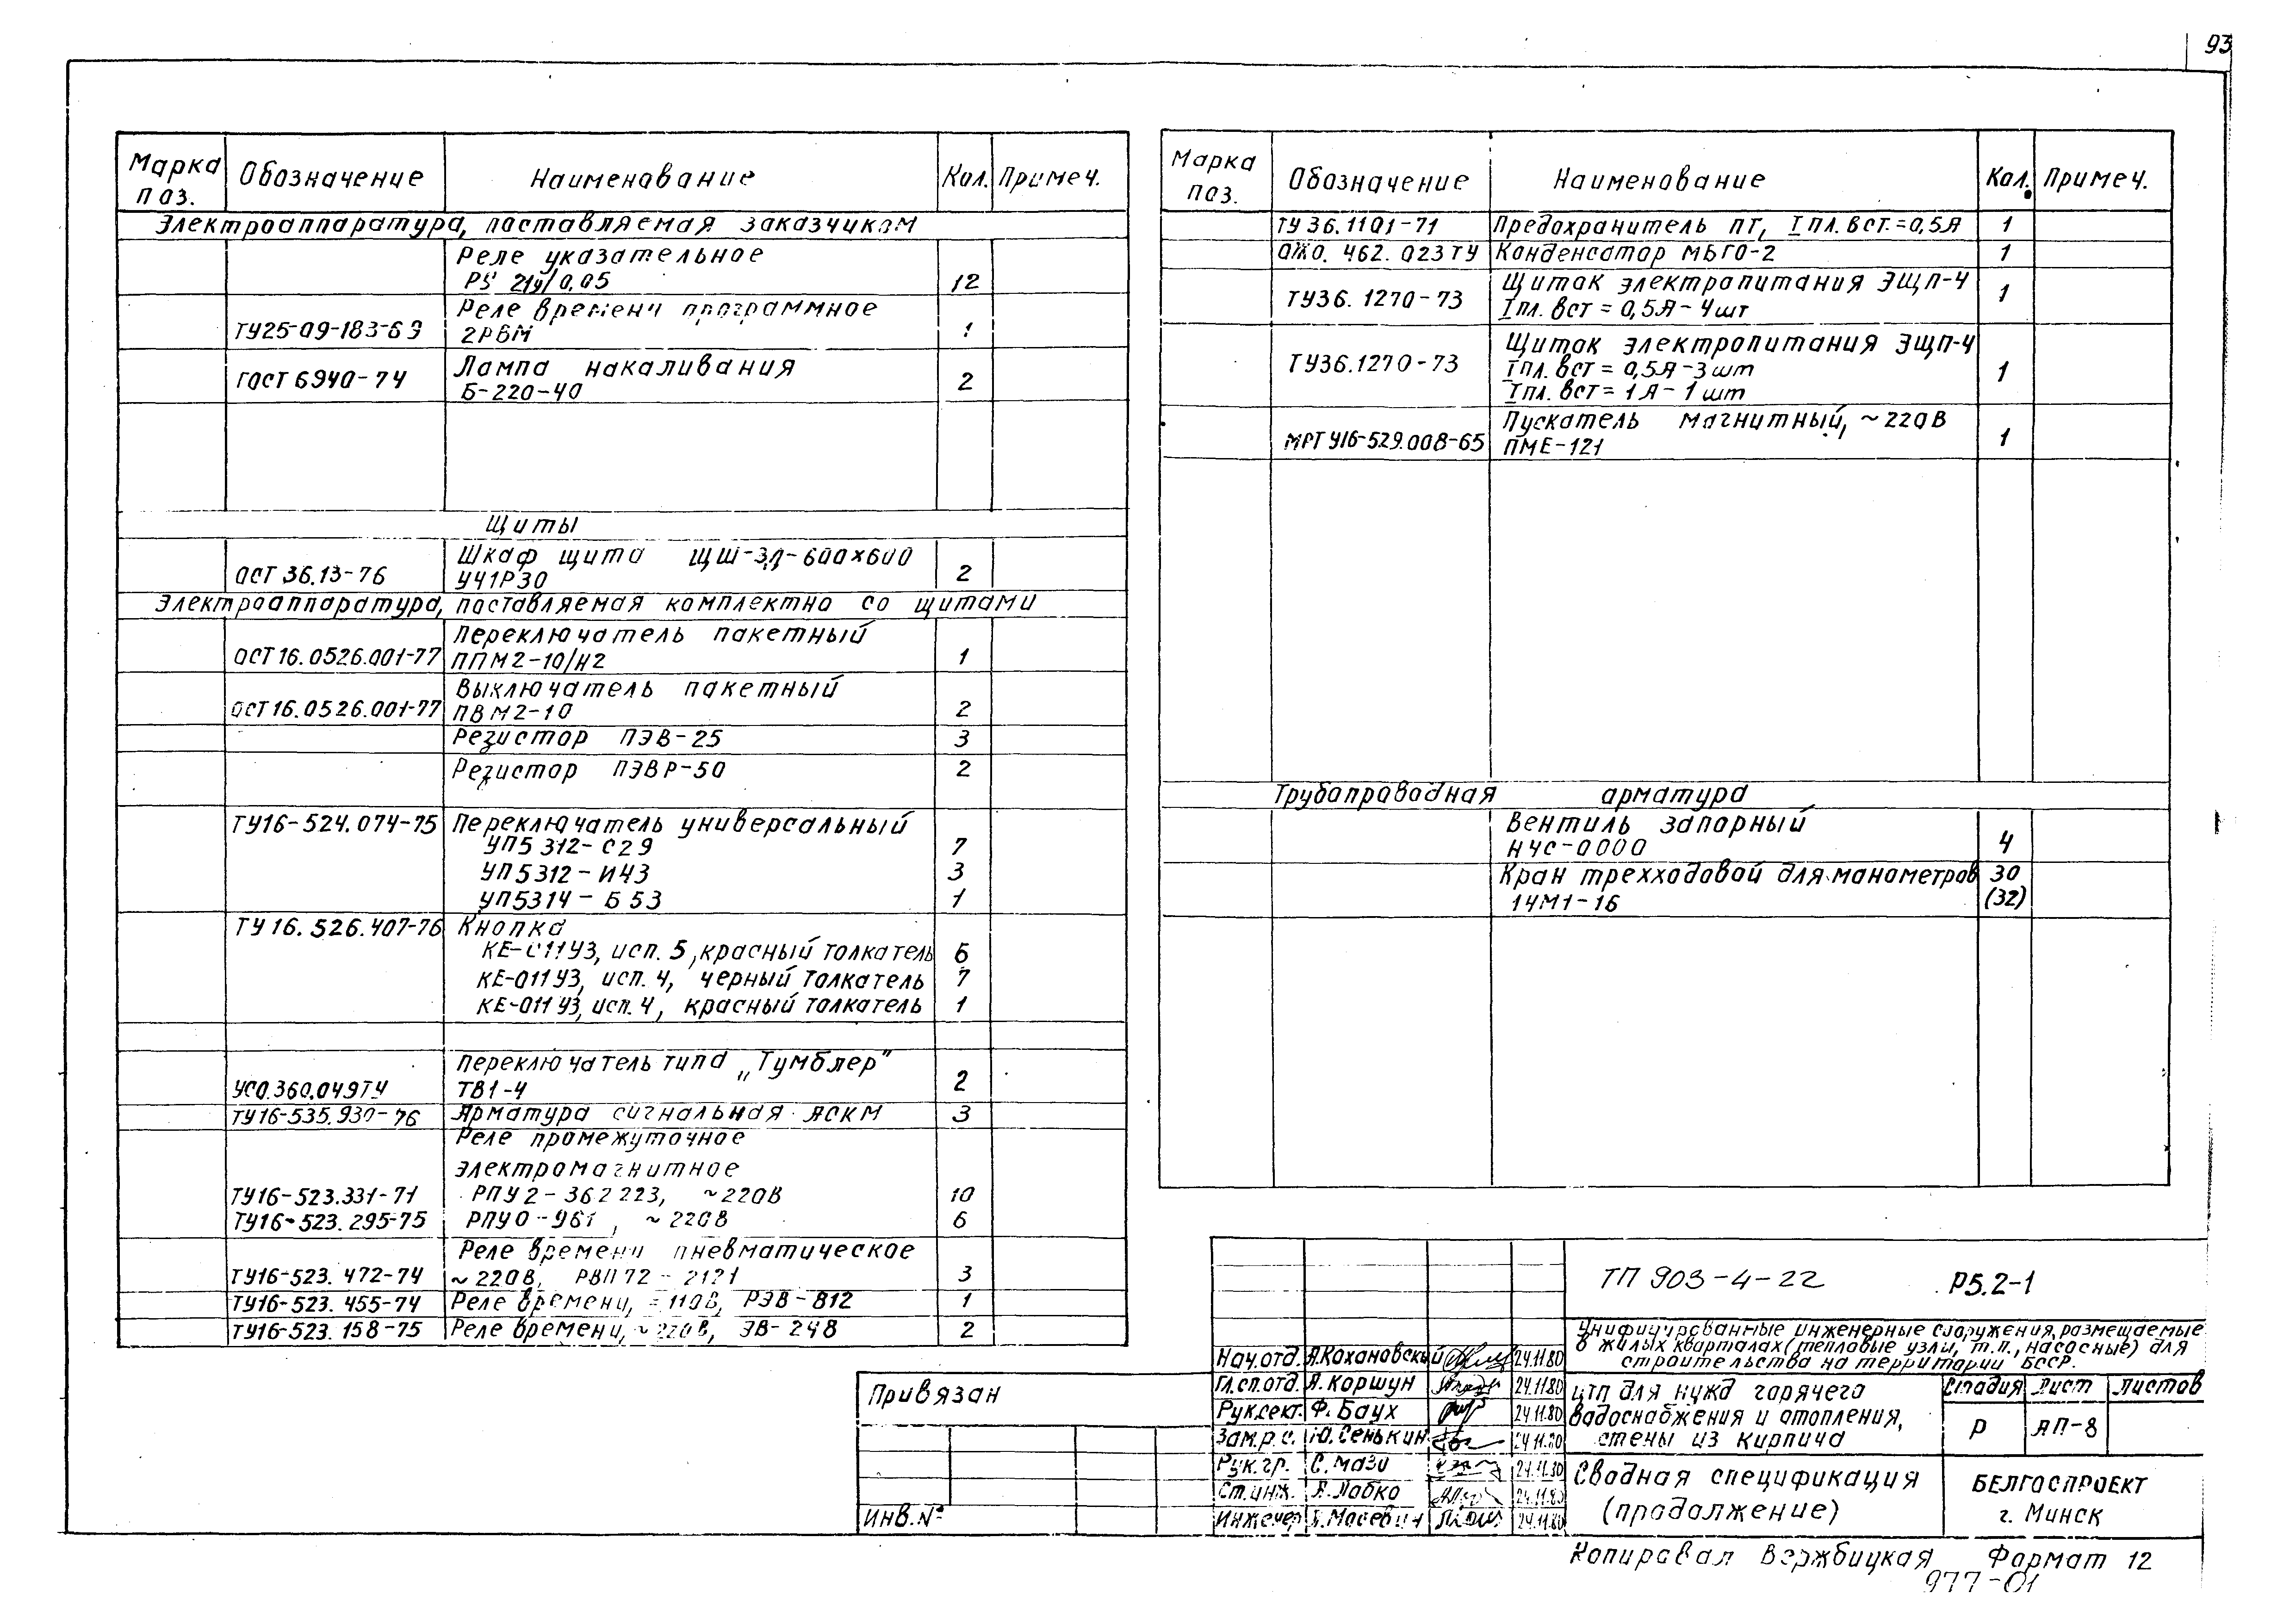 93
Марка поз. Обозначение Наименование Кол. Примеч.
Электроаппаратура, поставляемая заказчиком
Реле указательное
РУ 21у/0,05 12
Реле времени программное
ТУ25-09-183-69 2РВМ 1
Лампа накаливания
ГОСТ 6940-74 Б-220-40 2
Щиты
Шкаф щита ЩШ-ЗД-600х600
ОСТ 36.13-76 УЧ1Р30 2
Электроаппаратура, поставляемая комплектно со щитами
Переключатель пакетный
ОСТ16.0526.001-77 ППМ2-10/Н2 1
Выключатель пакетный
ОСТ16.0526.001-77 ПВМ2-10 2
Резистор ПЭВ-25 3
Резистор ПЭВР-50 2
ТУ16-524.074-75 Переключатель универсальный
УП5312-С29 7
УП5312-И43 3
УП5314-Б53 1
ТУ16.526.407-76 Кнопка
КЕ-011У3, исп. 5, красный толкатель 6
КЕ-011У3, исп. 4, черный толкатель 7
КЕ-011У3, исп. 4, красный толкатель 1
Переключатель типа „Тумблер"
УСО.360.049ТУ ТВ1-4 2
ТУ16-535.930-76 Арматура сигнальная АСКМ 3
Реле промежуточное
электромагнитное
ТУ16-523.331-71 РПУ2-362223, ~220В 10
ТУ16-523.295-75 РПУ0-961, ~220В 6
Реле времени пневматическое
ТУ16-523.472-74 ~220В, РВП72-2121 3
ТУ16-523.455-74 Реле времени, =110В, РЭВ-812 1
ТУ16-523.158-75 Реле времени, ~220В, ЭВ-248 2
Марка поз. Обозначение Наименование Кол. Примеч.
ТУ36.1101-71 Предохранитель ПТ, Iпл.вст.=0,5А 1
ОЖО.462.023ТУ Конденсатор МБГО-2 1
Щиток электропитания ЭЩП-4
ТУ36.1270-73 Iпл.вст = 0,5А-4шт 1
Щиток электропитания ЭЩП-4
ТУ36.1270-73 Iпл.вст = 0,5А-3шт 1
Iпл.вст = 1А-1шт
Пускатель магнитный, ~220В
МРТУ16-529.008-65 ПМЕ-121 1
Трубопроводная арматура
Вентиль запорный
НЧС-0000 4
Кран трехходовой для манометров 30
14М1-16 (32)
ТП 903-4-22 Р5.2-1
Унифицированные инженерные сооружения, размещаемые
в жилых кварталах (тепловые узлы, т.п., насосные) для
строительства на территории БССР.
Нач.отд. А.Кохановский 24.11.80
Гл.сп.отд. А.Коршун 24.11.80
Рук.сект. Ф.Баух 24.11.80
Зам.р.с. Ю.Сенькин 24.11.80
Рук.гр. С.Мази 24.11.80
Ст.инж. А.Лобко 24.11.80
Инженер Масевич 24.11.80
ЦТП для нужд горячего
водоснабжения и отопления,
стены из кирпича
Стадия Лист Листов
Р АП-8
Сводная спецификация
(продолжение)
БЕЛГОСПРОЕКТ
г. Минск
Привязан
Инв.№
Копировал Вержбицкая Формат 12
977-01